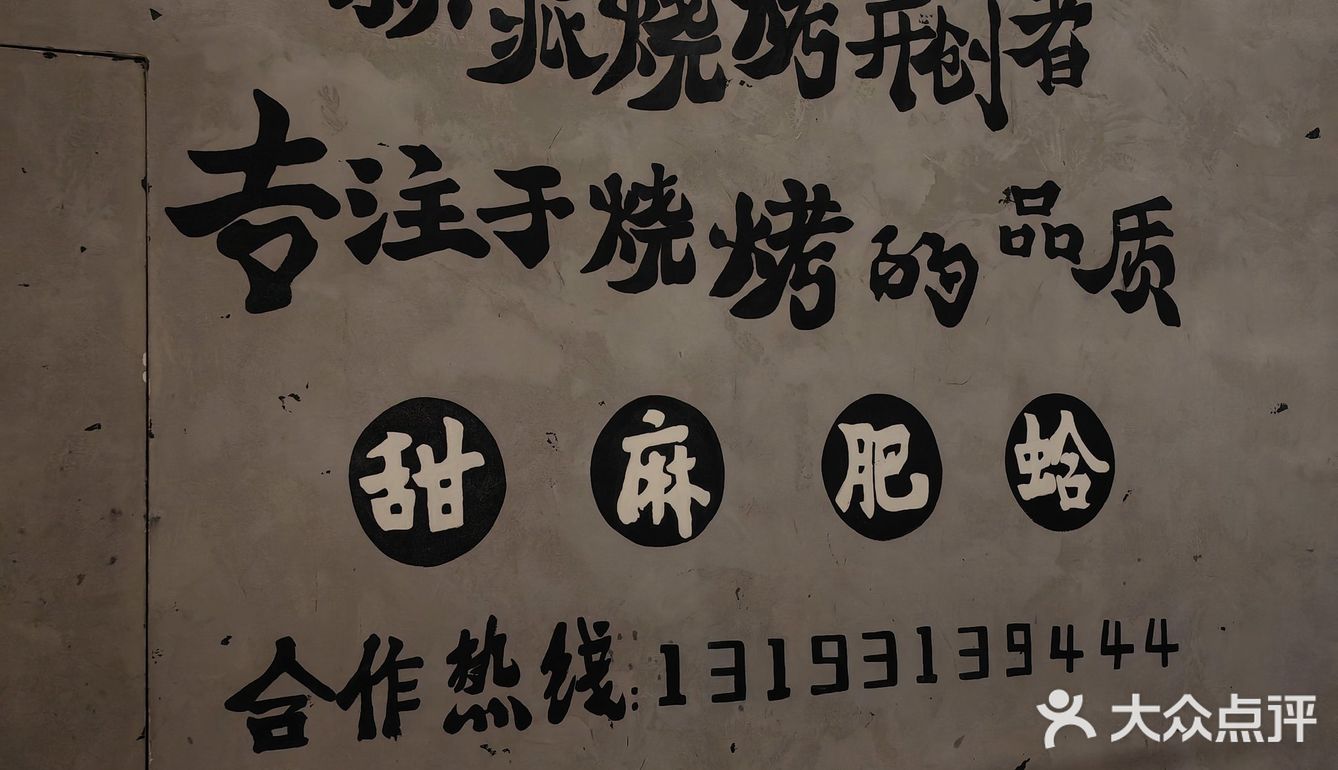 新派烧烤开创者
专注于烧烤的品质
甜 麻 肥 蛤
合作热线:13193139444
大众点评